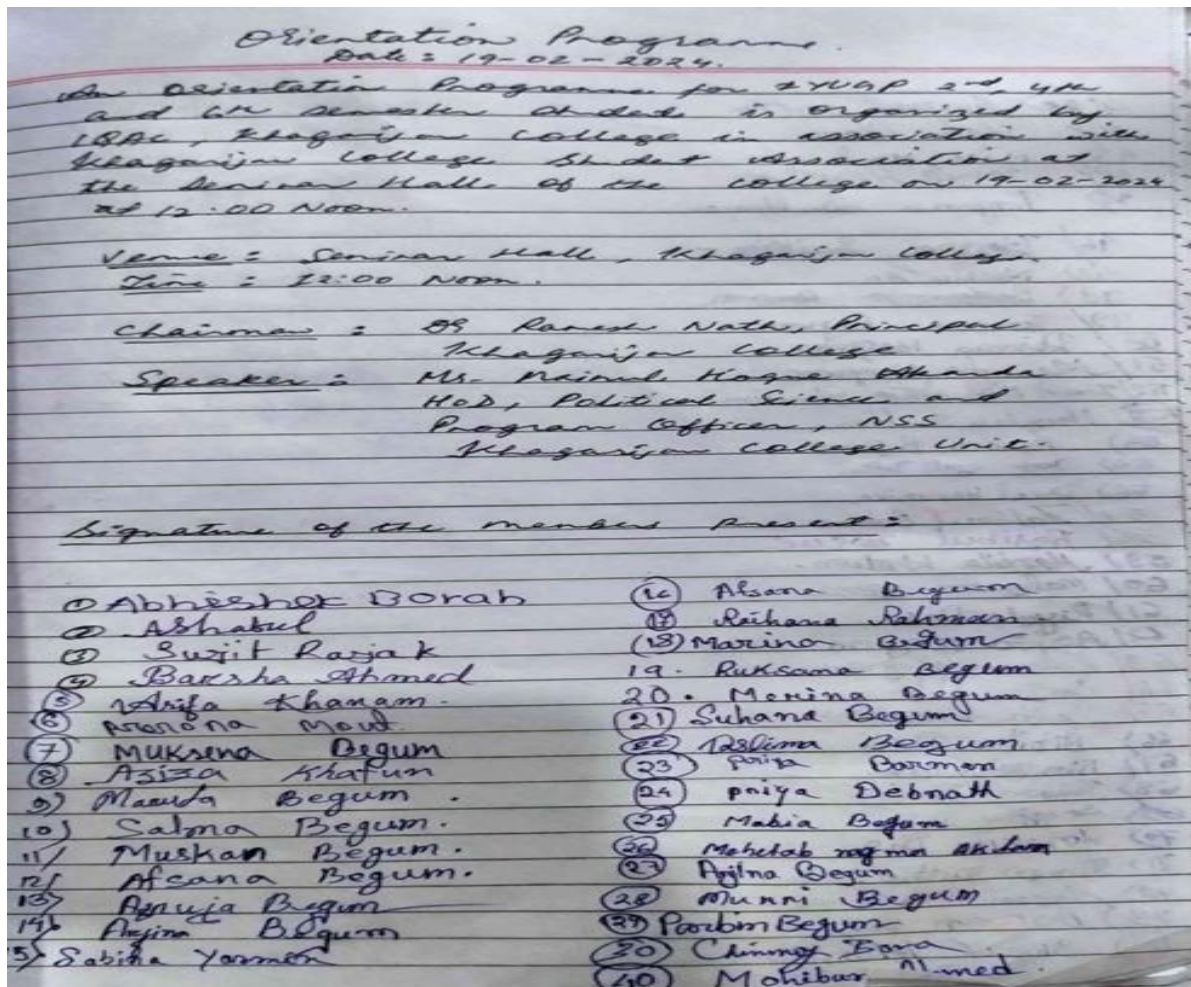 Orientation Programme.
Date: 19-02-2024.
An Orientation Programme for FYUGP 2nd, 4th
and 6th Semester Student is organized by
IQAC, Khagarijan College in association with
Khagarijan College Student Association at
the Seminar Hall of the college on 19-02-2024
at 12.00 Noon.
Venue : Seminar Hall, Khagarijan College.
Time : 12:00 Noon.
Chairman : Dr Ramesh Nath, Principal
Khagarijan College
Speaker : Mr. Mainul Hoque
HoD, Political Science and
Program Officer, NSS
Khagarijan College Unit.
Signature of the members Present :
① Abhishek Borah
② Ashabul
③ Surjit Rajak
④ Barsha Ahmed
⑤ Arifa Khanam.
⑥
⑦ Muksena Begum
⑧ Aziza Khatun
9) Begum.
10) Salma Begum.
11/ Muskan Begum.
12/ Afsana Begum.
13) Begum
14) Begum
15) Sabiha Yasmen
16 Afsana Begum
17 Raihana Rahman
18) Marina Begum
19. Ruksana Begum
20. Merina Begum
21) Suhana Begum
22 Taslima Begum
23 Priya Barman
24 Priya Debnath
25 Mabia Begum
26 Mehetab
27 Begum
28 Munni Begum
29 Begum
30) Chinmoy Bora
40 Mohibur Ahmed.